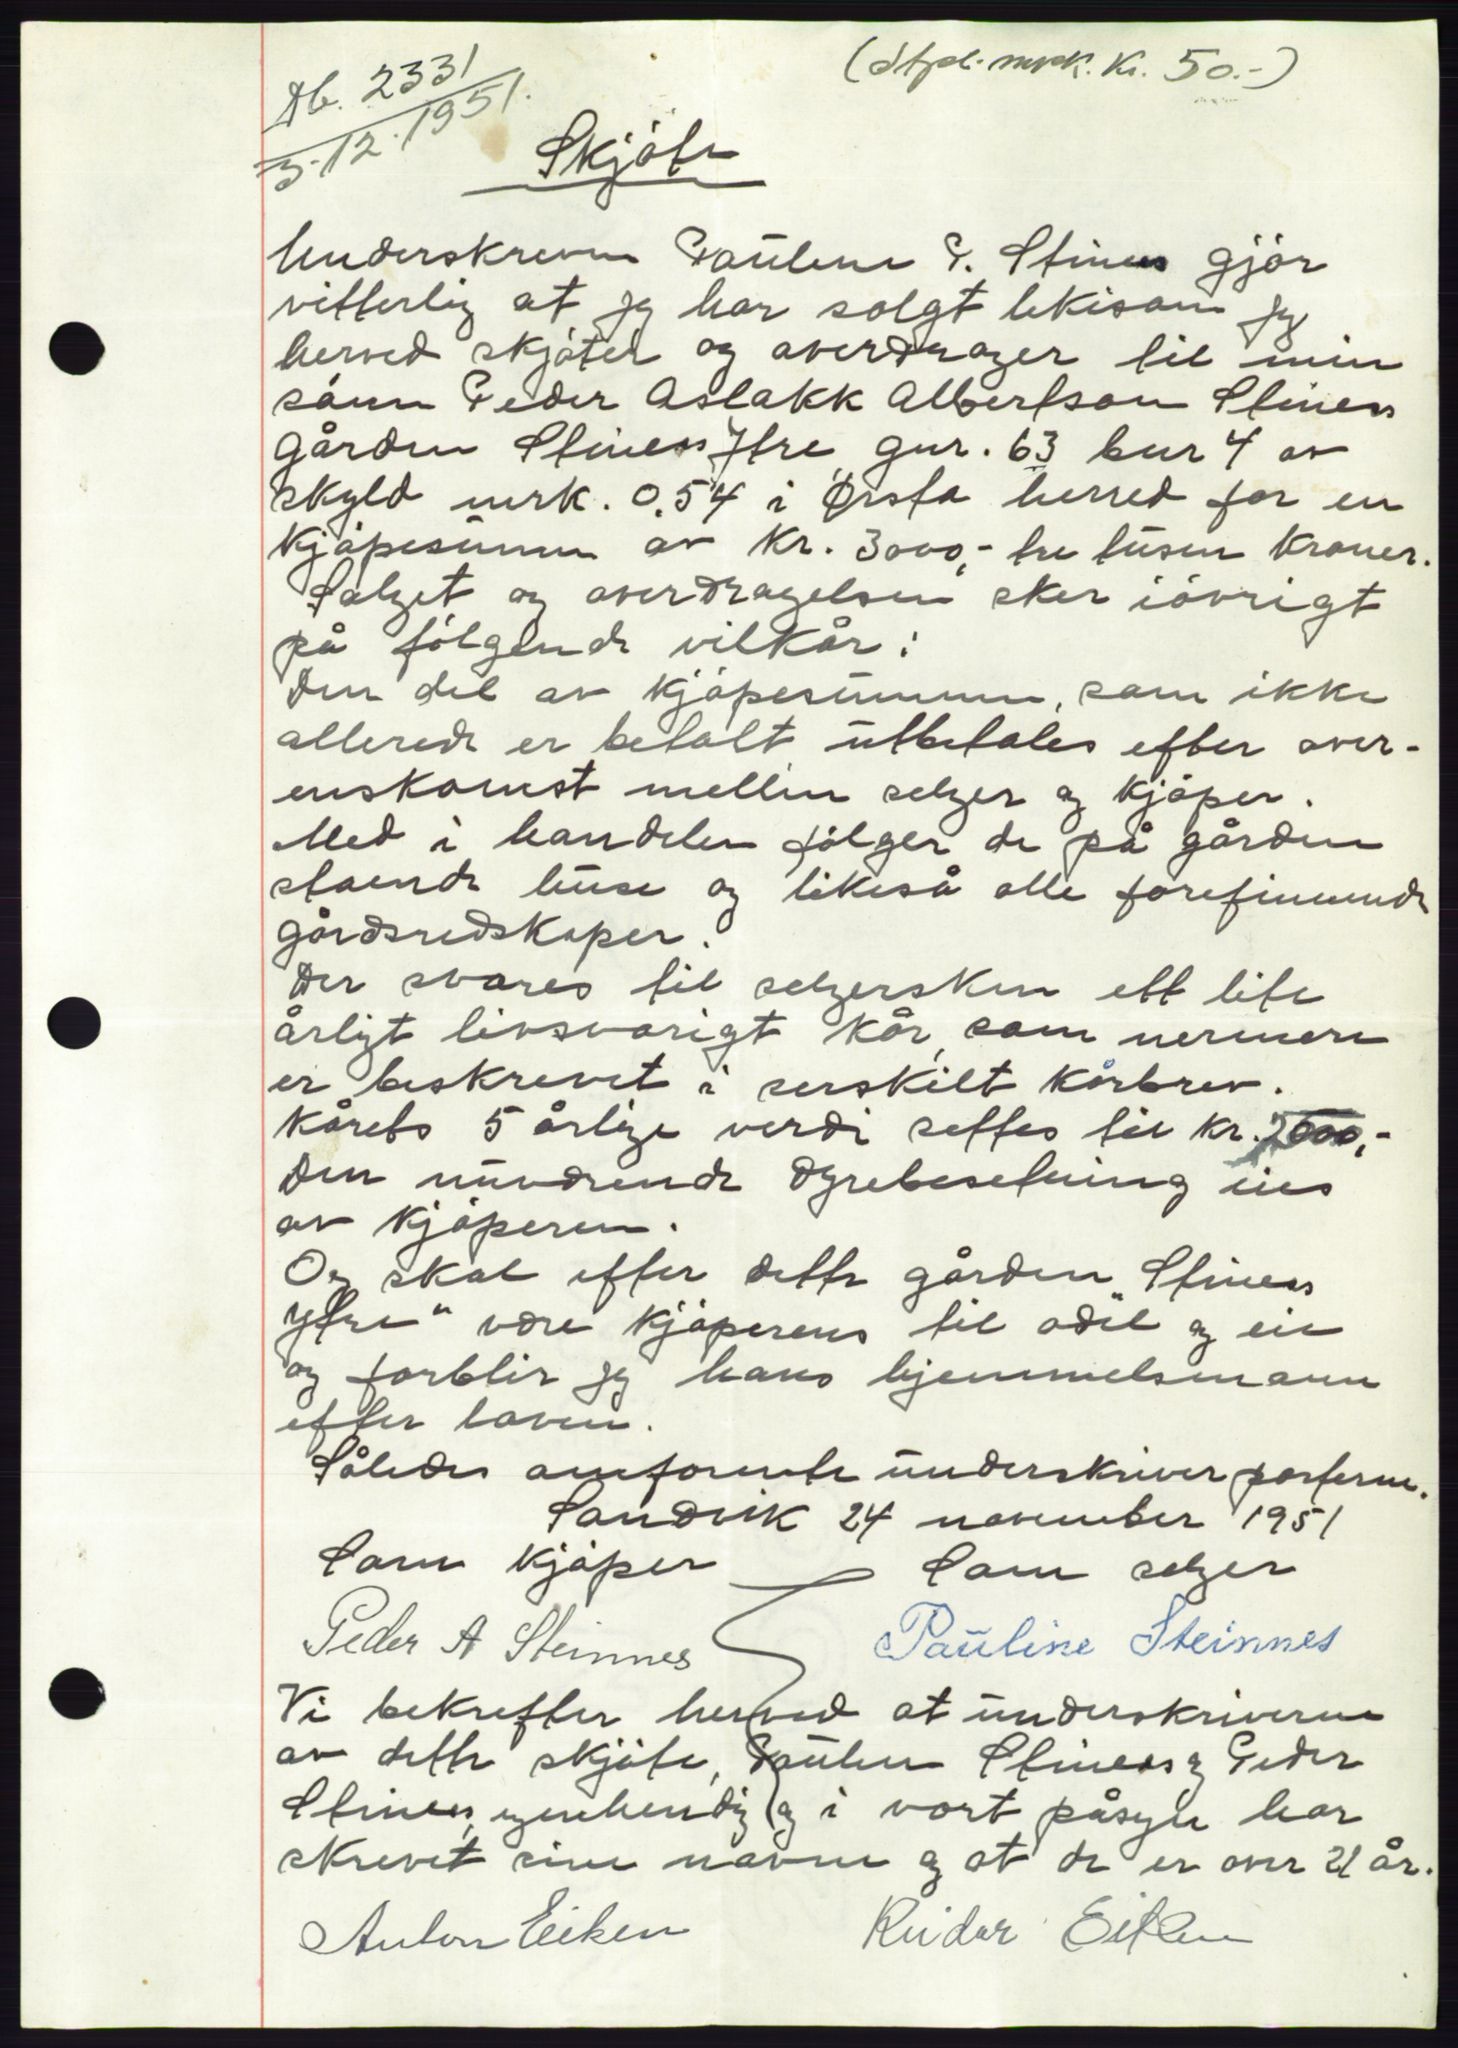 (Stpl. merk. Kr. 50.-)
Db. 2331
3-12-1951.
Skjöte
Underskreven Pauline P. Steines gjör
vitterlig at jeg har solgt likesom jeg
herved skjöter og overdrager til min
sönn Peder Aslakk Albertson Steines
gården Steines Ytre gnr. 63 bnr 4 av
skyld mrk. 0.54 i Ørsta herred for en
kjöpesumm av Kr. 3000,- tre tusen kroner.
Salget og overdragelsen sker iövrigt
på fölgende vilkår:
Den del av kjöpesummen, som ikke
allerede er betalt utbetales efter over-
enskomst mellem selger og kjöper.
Med i handelen fölger de på gården
staende huse og likeså alle forefinnende
gårdsredskaper.
Der svares til selgersken ett lite
årligt livsvarigt kår, som nermere
er beskrevet i serskilt kårbrev.
Kårets 5 årlige verdi settes til kr. 2000,-
Den nuværende dyrebesetning eies
av kjöperen.
Og skal efter dette gården "Steines
Ytre" være kjöperens til odel og eie
og forblir jeg hans hjemmelsmann
efter loven.
Således omforente underskriver parterne.
Sandvik 24 november 1951
Som kjöper Som selger
Peder A Steinnes Pauline Steinnes
Vi bekrefter herved at underskriverne
av dette skjöte, Pauline Steines og Peder
Steines, egenhendig og i vort påsyn har
skrevet sine navne og at de er over 21 år.
Anton Eiken Reidar Eiken